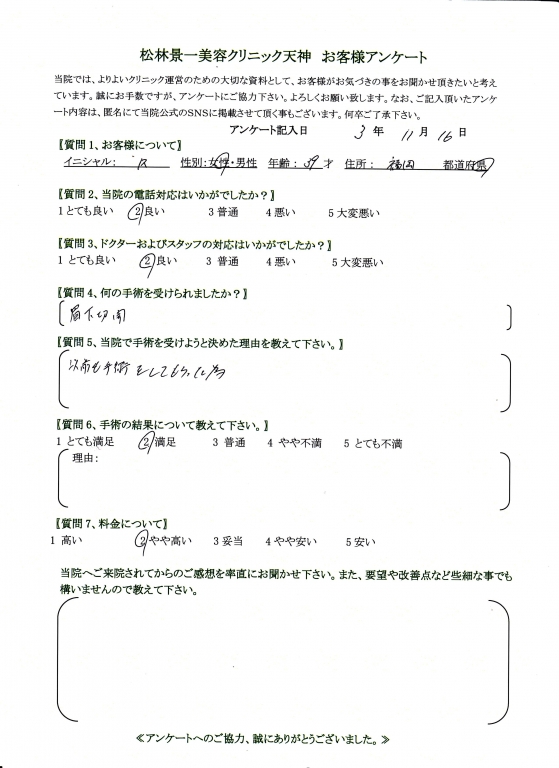 松林景一美容クリニック天神　お客様アンケート
当院では、よりよいクリニック運営のための大切な資料として、お客様がお気づきの事をお聞かせ頂きたいと考え
ています。誠にお手数ですが、アンケートにご協力下さい。よろしくお願い致します。なお、ご記入頂いたアンケ
ート内容は、匿名にて当院公式のSNSに掲載させて頂く事もございます。何卒ご了承下さい。
アンケート記入日　3 年　11 月　16 日
【質問 1、お客様について】
イニシャル：　性別：女性・男性　年齢：39 才　住所：福岡　都道府県
【質問 2、当院の電話対応はいかがでしたか？】
1 とても良い　2 良い　3 普通　4 悪い　5 大変悪い
【質問 3、ドクターおよびスタッフの対応はいかがでしたか？】
1 とても良い　2 良い　3 普通　4 悪い　5 大変悪い
【質問 4、何の手術を受けられましたか？】
眉下切開
【質問 5、当院で手術を受けようと決めた理由を教えて下さい。】
以前も手術をしてもらった為
【質問 6、手術の結果について教えて下さい。】
1 とても満足　2 満足　3 普通　4 やや不満　5 とても不満
理由：
【質問 7、料金について】
1 高い　2 やや高い　3 妥当　4 やや安い　5 安い
当院へご来院されてからのご感想を率直にお聞かせ下さい。また、要望や改善点など些細な事でも
構いませんので教えて下さい。
≪アンケートへのご協力、誠にありがとうございました。≫